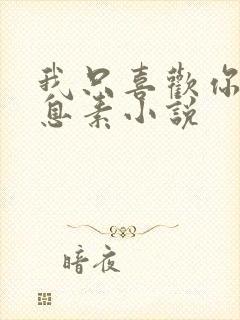 我只喜歡你
息素小說
暗夜